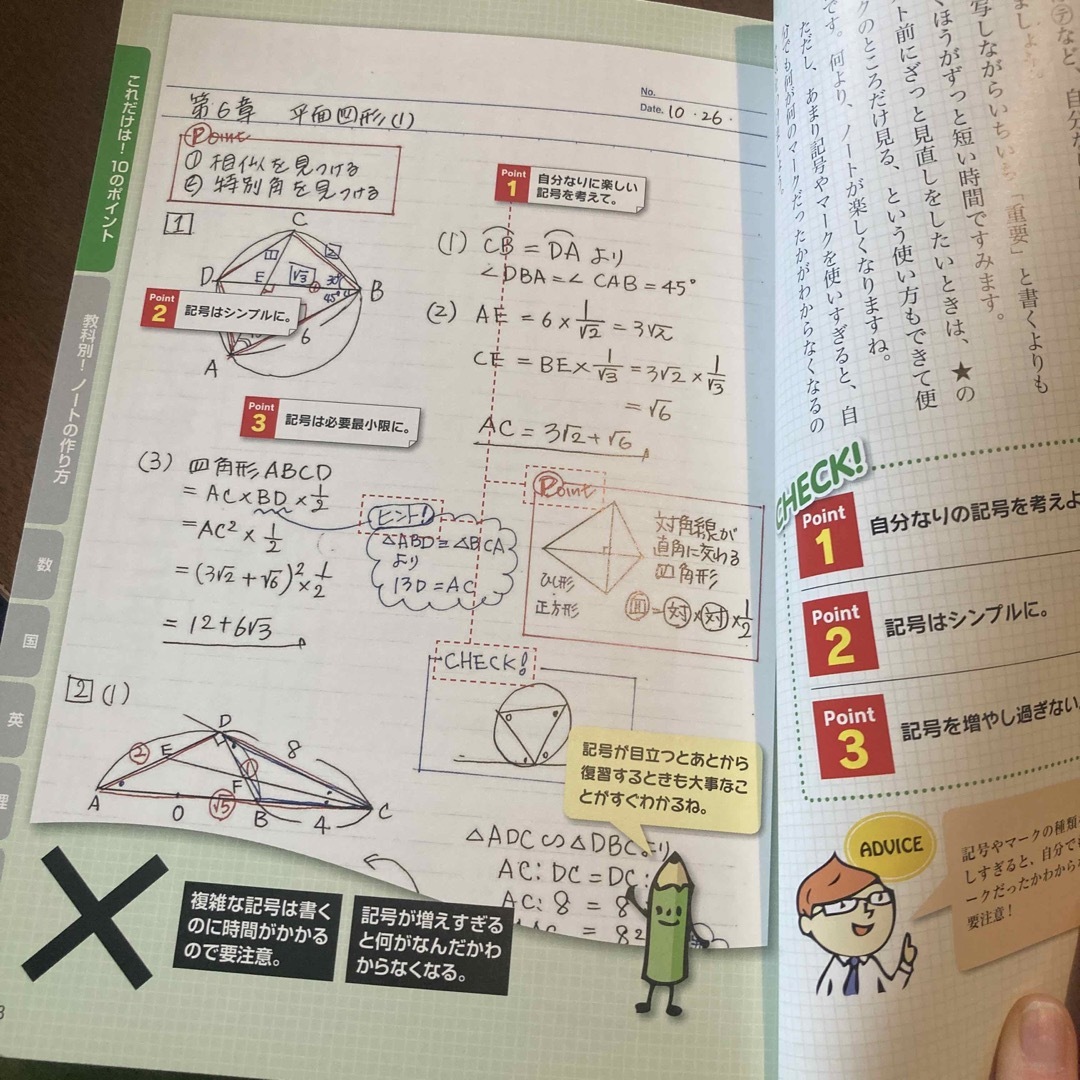 これだけは！ 10のポイント
教科別！ ノートの作り方
数
国
英
理
No.
Date. 10・26・
第6章 平面図形(1)
Point
① 相似を見つける
② 特別角を見つける
Point 1
自分なりに楽しい
記号を考えて。
1
C
D
E
B
A
1
2
√3
30°
45°
6
Point 2
記号はシンプルに。
(1) CB = DA より
∠DBA = ∠CAB = 45°
(2) AE = 6 × 1/√2 = 3√2
CE = BE × 1/√3 = 3√2 × 1/√3
= √6
AC = 3√2 + √6
Point 3
記号は必要最小限に。
(3) 四角形ABCD
= AC × BD × 1/2
= AC² × 1/2
= (3√2 + √6)² × 1/2
= 12 + 6√3
ヒント！
△ABD ≡ △BCA
より
BD = AC
Point
対角線が
直角に交わる
四角形
ひし形
正方形
面 = 対 × 対 × 1/2
CHECK!
2 (1)
D
2
E
8
1
F
A
O
√5
B
4
C
記号が目立つとあとから
復習するときも大事なこ
とがすぐわかるね。
△ADC ∽ △DBC より
AC : DC = DC :
AC : 8 = 8
= 8²
複雑な記号は書く
のに時間がかかる
ので要注意。
記号が増えすぎる
と何がなんだかわ
からなくなる。
など、自分な
写しながらいちいち「重要」と書くよりも
くほうがずっと短い時間ですみます。
ト前にざっと見直しをしたいときは、★の
クのところだけ見る、という使い方もできて便
です。何より、ノートが楽しくなりますね。
ただし、あまり記号やマークを使いすぎると、自
分でも何が何のマークだったかがわからなくなるの
CHECK!
Point 1
自分なりの記号を考えよ
Point 2
記号はシンプルに。
Point 3
記号を増やし過ぎない
ADVICE
記号やマークの種類
しすぎると、自分で
ークだったかわから
要注意！
3